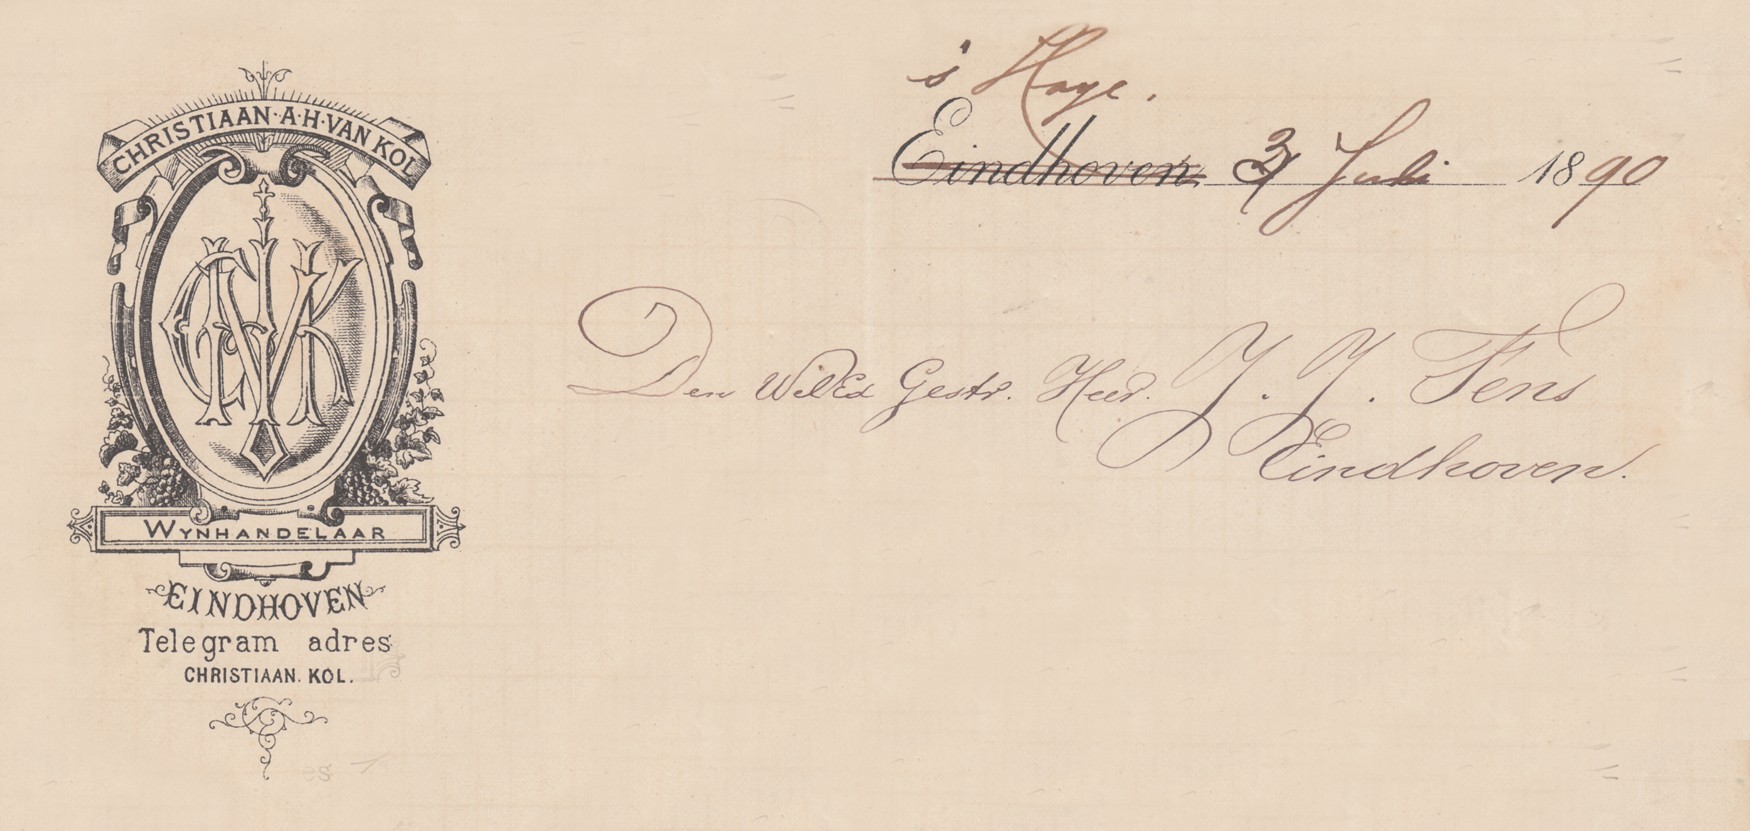 CHRISTIAAN·A·H·VAN KOL
WYNHANDELAAR
EINDHOVEN
Telegram adres
CHRISTIAAN. KOL.
's Hage.
Eindhoven 3 Juli 1890
Den WelEd Gestr. Heer. J. J. Fens
Eindhoven.